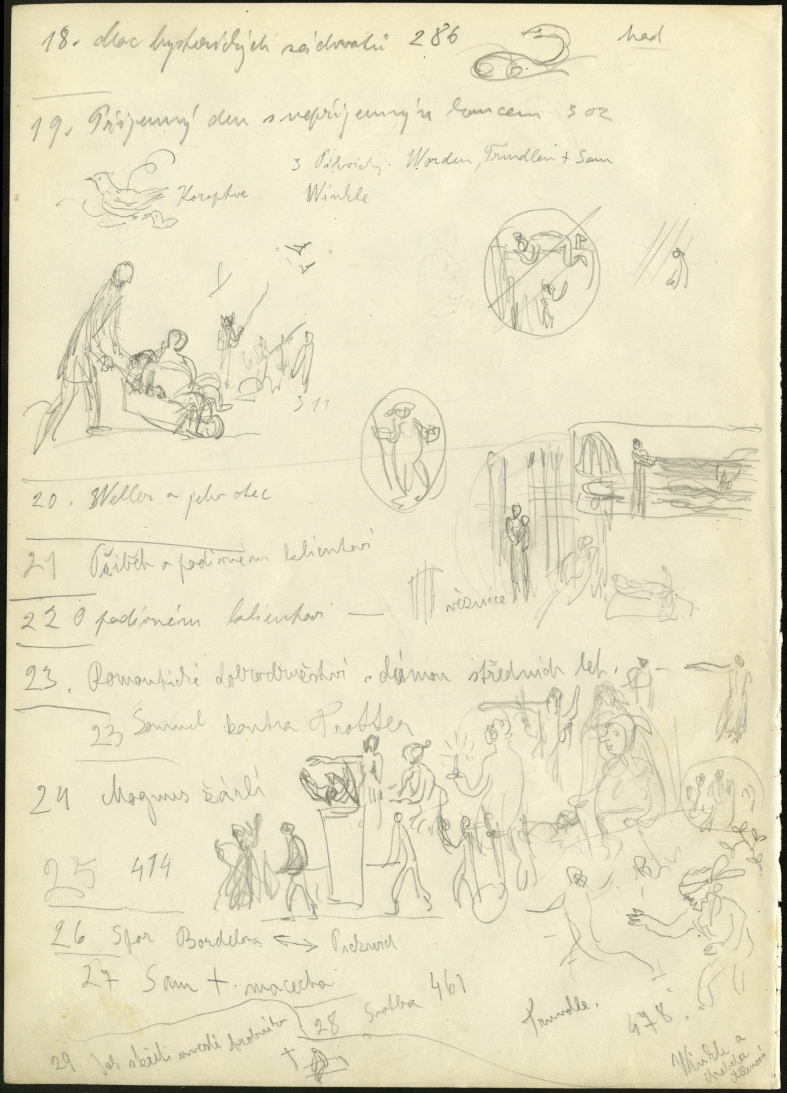 18. Moc hysterických záchvatů 286
had
19. Příjemný den s nepříjemným koncem 302
3 Pikvici. Worden, Trundlem + Sam
Koroptve Winkle
311
20. Weller a jeho otec
21 Příběh o podivném klientovi
22 O podivném klientovi —
věznice
23. Romantické dobrodružství s dámou středních let.
23 Samuel kontra Trotter
24 Magnus žárlí
25 414
26 Spor Bardelová ↔ Pickwick
27 Sam + macecha
28 Svatba 461
Trundle. 478.
29. Jak skřeti unesli hrobníka
Winkle a
Arabela
Allenová